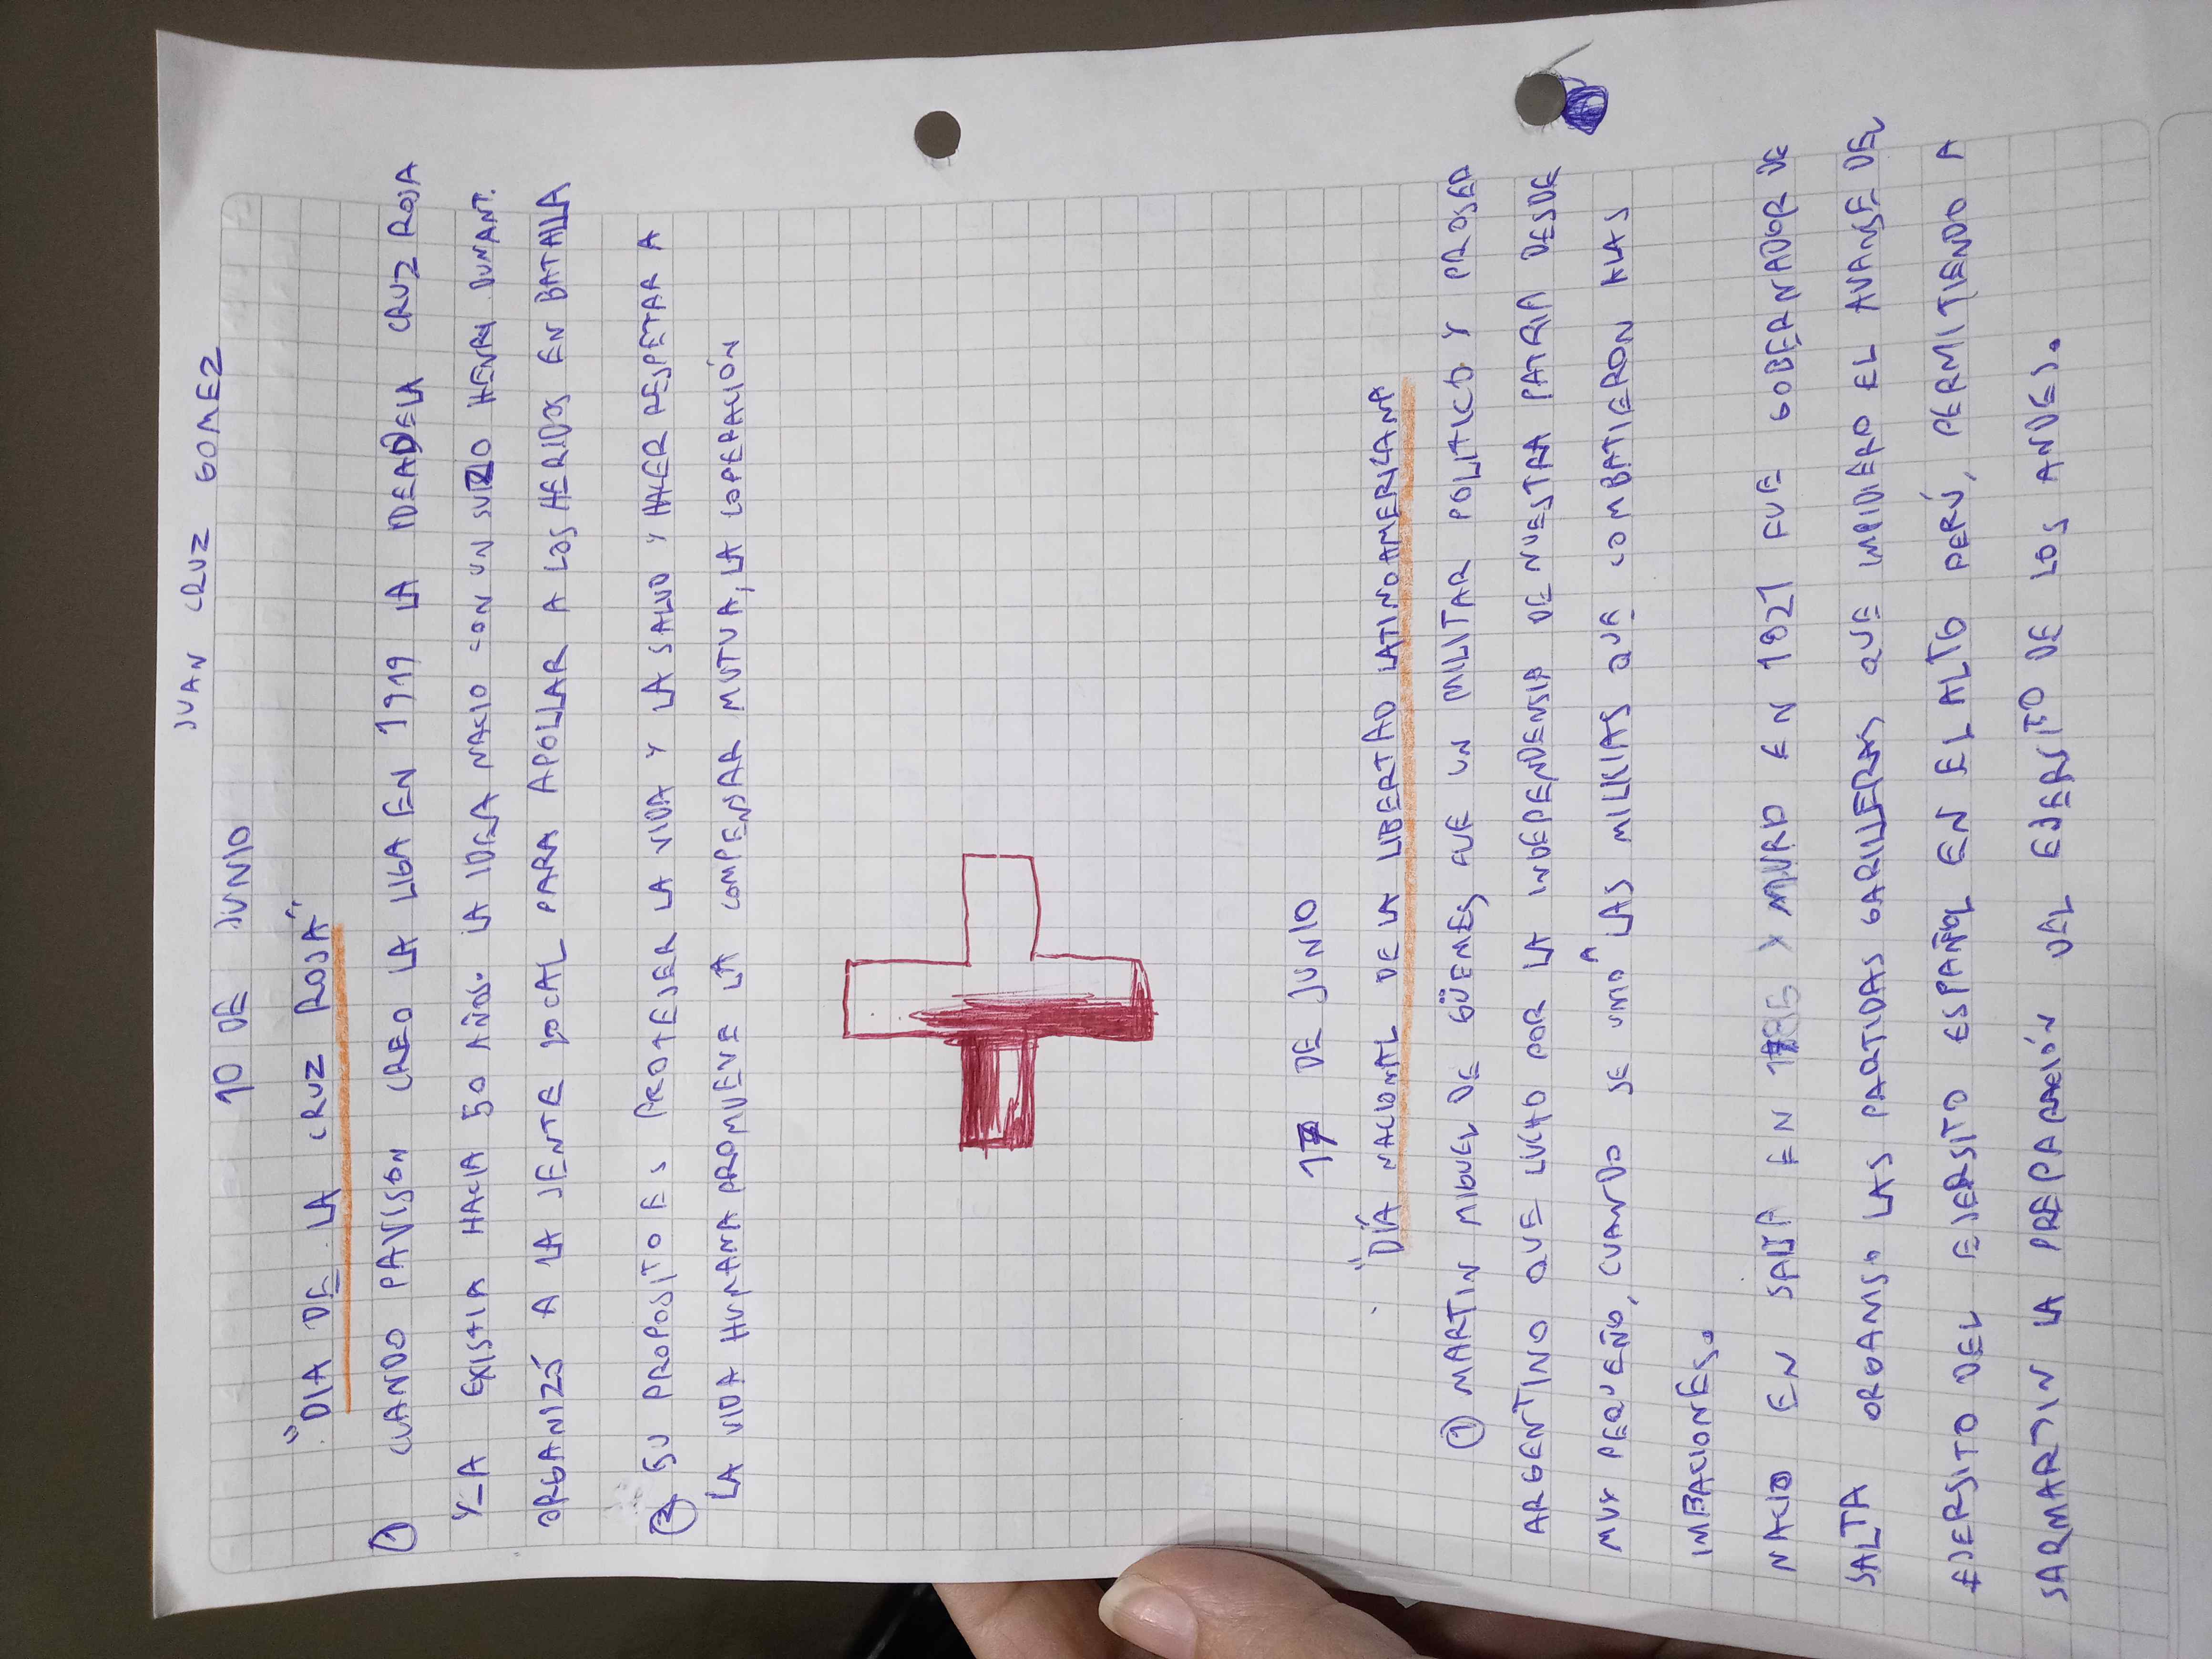 JUAN CRUZ GOMEZ
10 DE JUNIO
"DIA DE LA CRUZ ROJA"
① CUANDO PAVISON CREO LA LIGA EN 1919 LA IDEA DE LA CRUZ ROJA
Y_A EXISTIA HACIA 50 AÑOS. LA IDEA NACIO CON UN SUIZO HENRI DUNANT.
ORGANIZÓ A LA JENTE LOCAL PARA APOLLAR A LOS HERIDOS EN BATALLA
② SU PROPOSITO ES PROTEJER LA VIDA Y LA SALUD Y HACER RESPETAR A
LA VIDA HUMANA PROMUEVE LA COMPENSAR MUTUA, LA COPERACIÓN
17 DE JUNIO
"DÍA NACIONAL DE LA LIBERTAD LATINOAMERICANA
① MARTIN MIGUEL DE GÜEMES FUE UN MILITAR POLITICO Y PROSED
ARGENTINO QUE LUCHO POR LA INDEPENDENSIA DE NUESTRA PATRIA DESDE
MUY PEQUEÑO, CUANDO SE UNIO A LAS MILICIAS QUE COMBATIERON ALAS
IMBACIONES.
NACIO EN SALTA EN 1785 Y MURO EN 1821 FUE GOBERNADOR DE
SALTA ORGANISO LAS PARTIDAS GARILLERAS QUE IMPIDIERO EL AVANSE DEL
EJERSITO DEL EJERSITO ESPAÑOL EN EL ALTO PERÚ, PERMITIENDO A
SARMARTIN LA PREPARACIÓN DEL EJERSITO DE LOS ANDES.